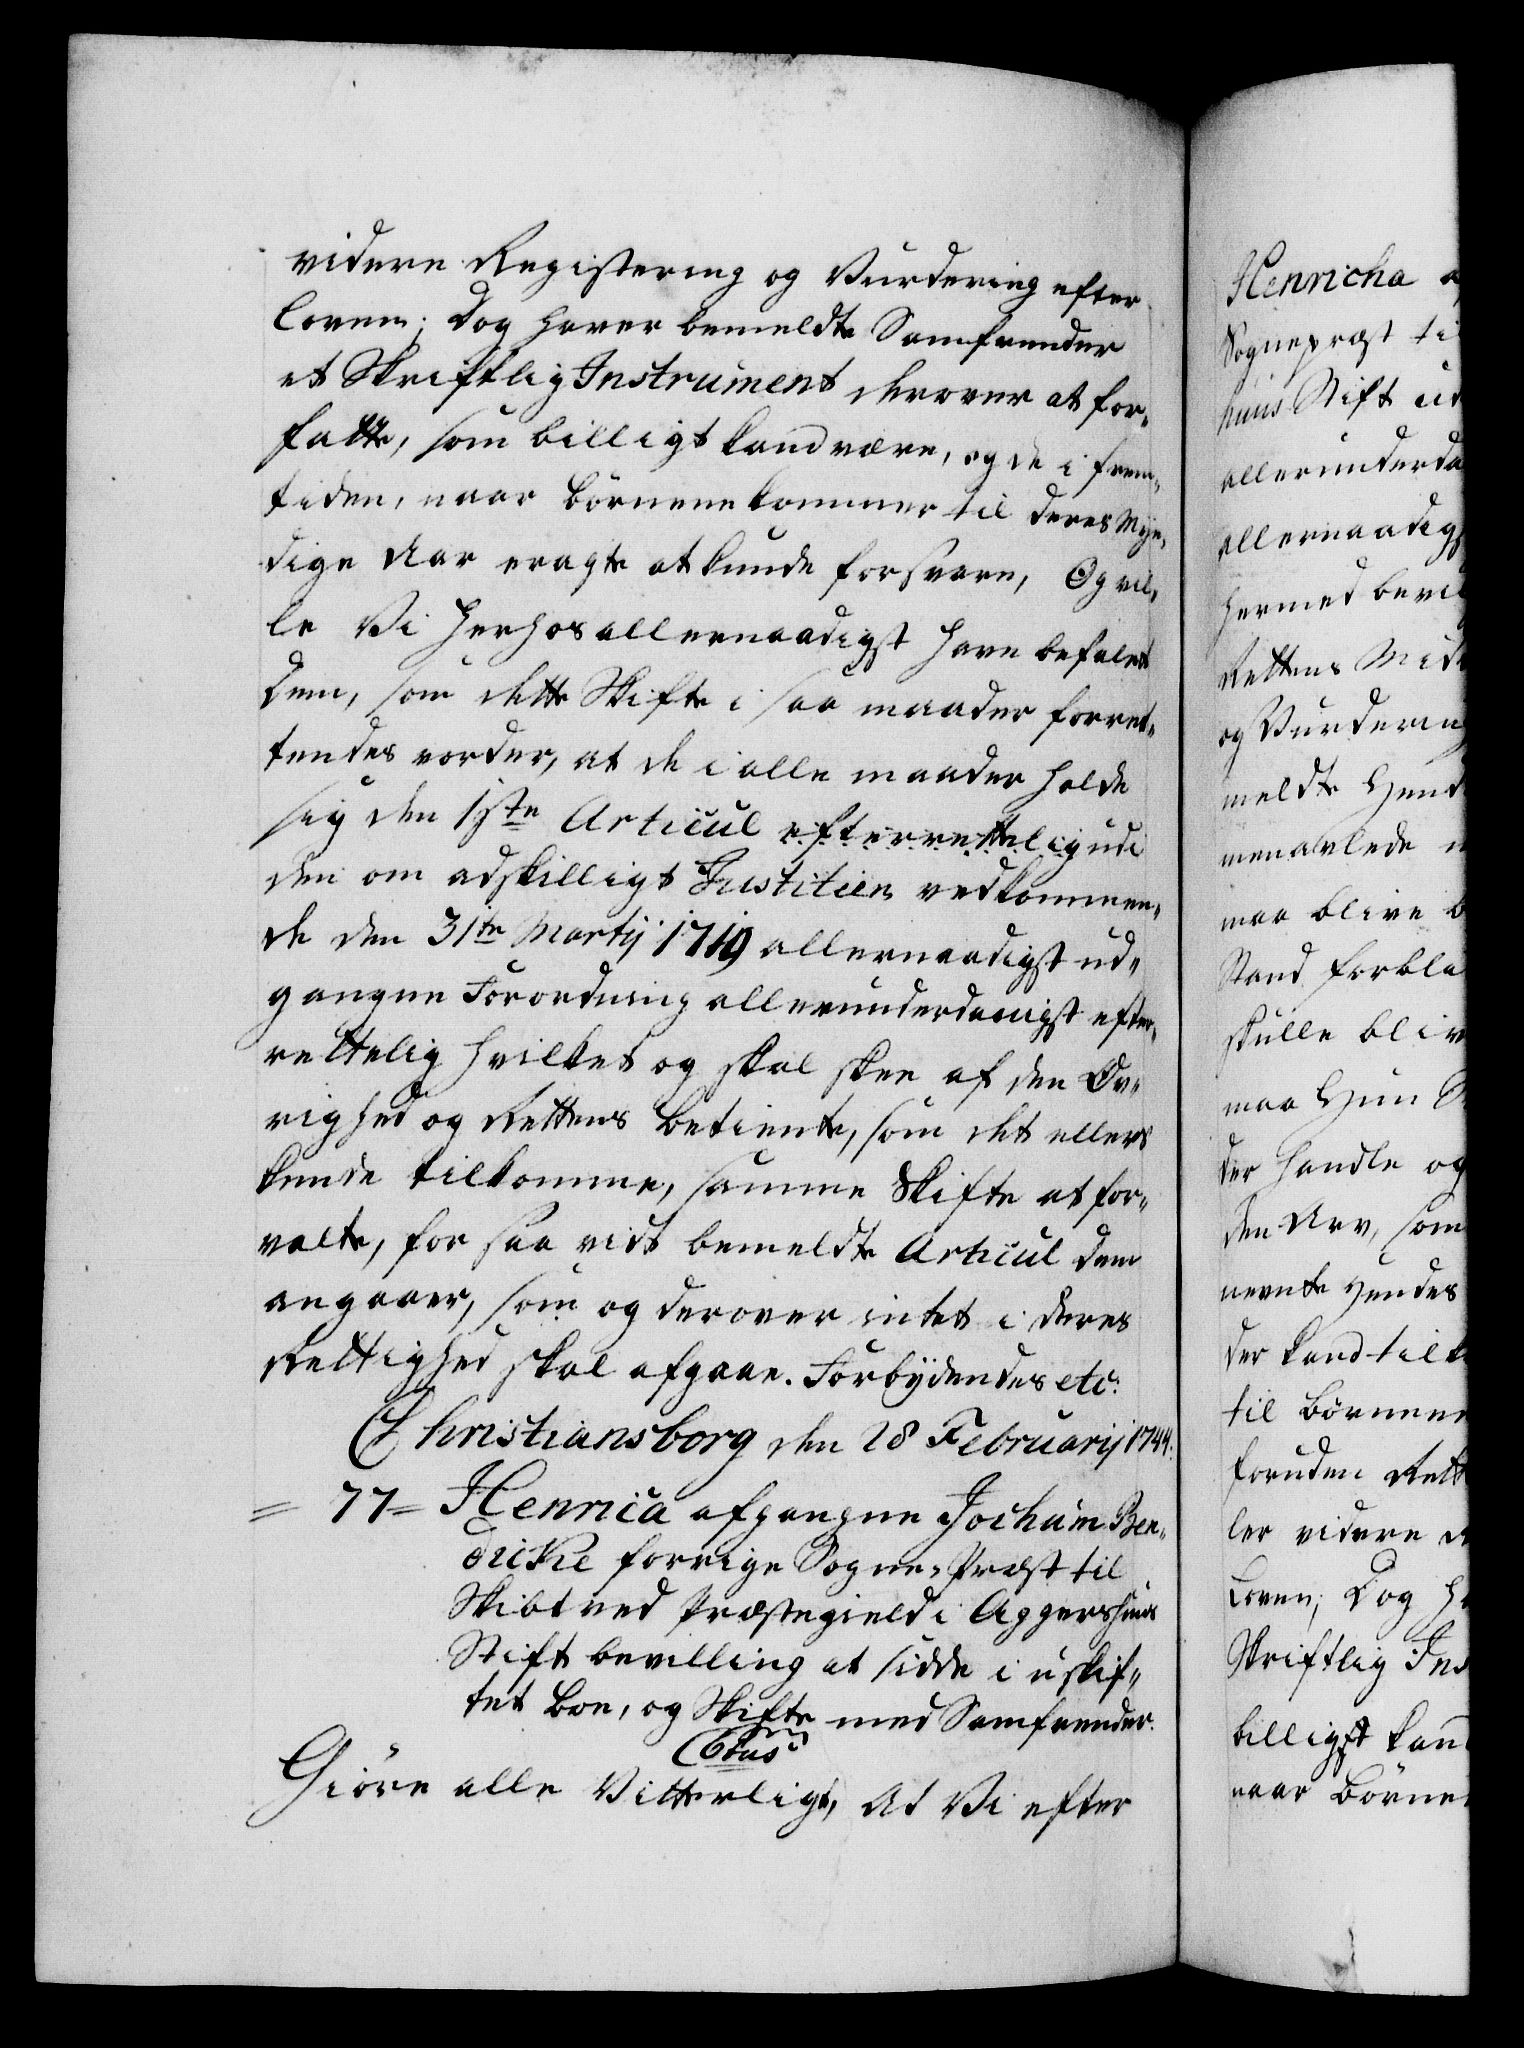 videre Registering og Vurdering efter
Loven; Dog haver bemeldte Samfrender
et Skriftlig Instrument derover at for-
fatte, som billigt kand være, og de i frem-
tiden, naar Börnene kommer til deres Myn-
dige Aar eragte at kunde forsvare, Og vil-
le Vi herhos allernaadigst have befalet
dem, som dette Skifte i saa maader forret-
tendes vorder, at de i alle maader holde
sig den 1ste Articul efterrettelig udi
den om adskilligt Justitien vedkommen-
de den 31te Martij 1719 allernaadigst ud-
gangne Forordning allerunderdanigst efter-
rettelig hvilket og skal skee af den Øv-
righed og Rettens betiente, som det ellers
kunde tilkomme, samme Skifte at for-
valte, for saa vidt bemeldte Articul dem
angaaer, som og derover intet i deres
Rettighed skal afgaae. Forbÿdendes etc:
Christiansborg den 28 Februarij 1744.
= 77 = Henrica afgangne Jochum Ben-
dicke forrige Sogne-Præst til
Skibtved Præstegield i Aggershuus
Stift bevilling at sidde i uskif-
tet boe, og Skifte med Samfrender.
C6tus
Giöre alle Vitterligt, At Vi efter
Henricha
Sognepræst til
huus Stift ud
allerunderda
allernaadigst
hermed bevil
Rettens Mid
og Vurdering
meldte Hend
menavlede
maa blive
Stand forble
skulle bliv
maa Hun
der handle og
den Arv, som
nevnte Hendes
der kand tilk
til Börnene
foruden Rett
ler videre
Loven; Dog h
Skriftlig Ins
billigst kand
naar Börne